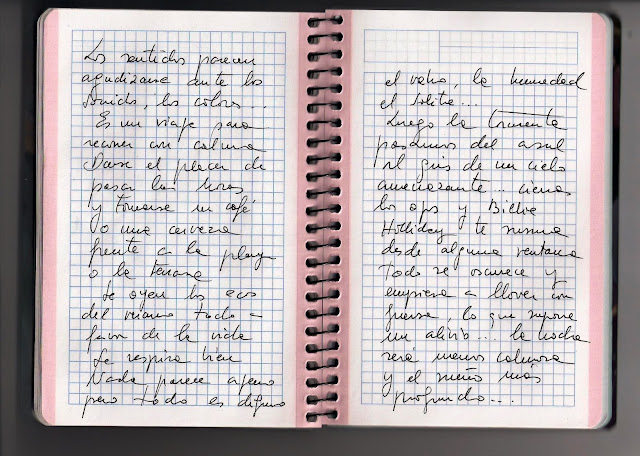 Los sentidos parecen
agudizarse ante los
sonidos, los colores...
Es un viaje para
recorrer con calma
Darse el placer de
pasar las horas
y tomarse un café
o una cerveza
frente a la playa
o la terraza
Se oyen los ecos
del verano todo a
favor de la vida
Se respira bien
Nada parece ajeno
pero todo es difuso
el vaho, la humedad
el salitre...
Luego la tormenta
pasamos del azul
al gris de un cielo
amenazante... cierras
los ojos y Billie
Holliday te susurra
desde alguna ventana
Todo se oscurece y
empieza a llover con
fuerza, lo que supone
un alivio... la noche
será menos calurosa
y el sueño más
profundo...